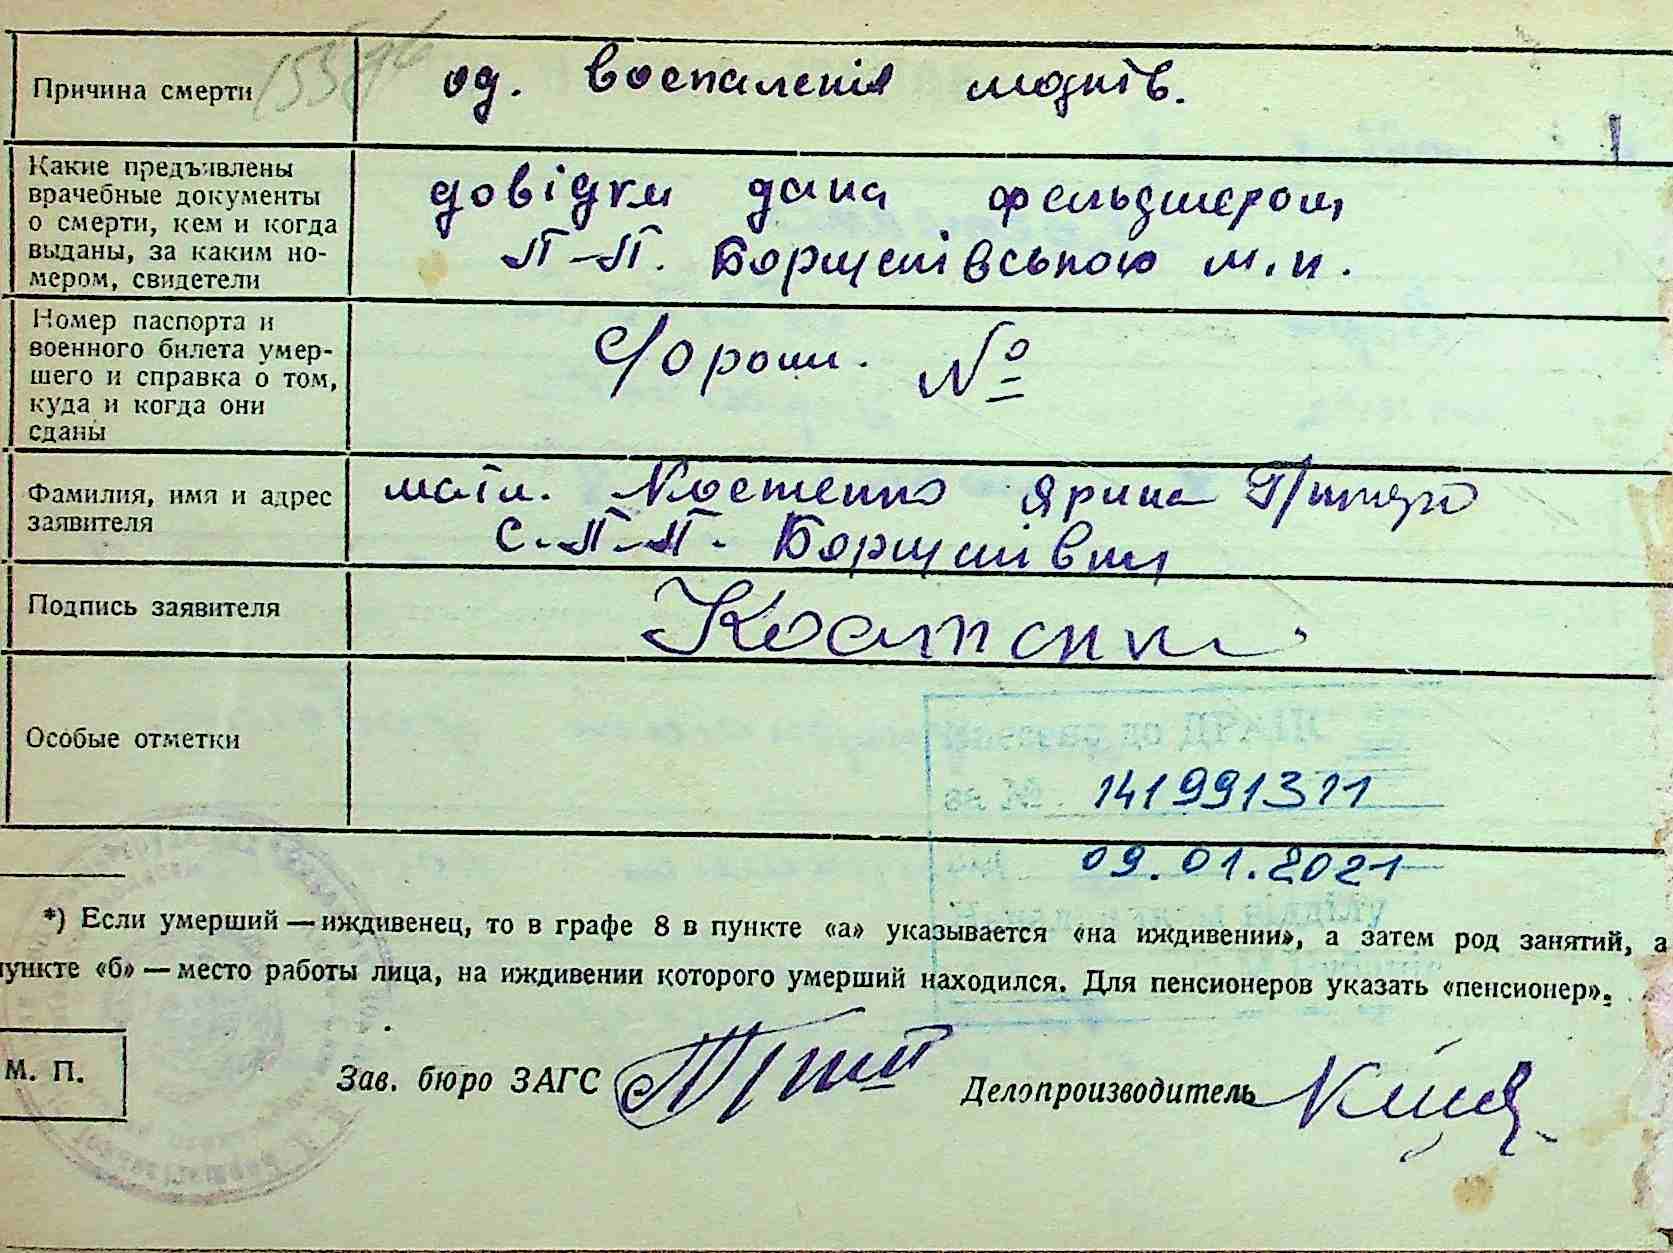 Причина смерти
од. воспаления мозків.
Какие предъявлены
врачебные документы
о смерти, кем и когда
выданы, за каким но-
мером, свидетели
довідки дана фельдшером
П-П. Борщагівською м.п.
Номер паспорта и
военного билета умер-
шего и справка о том,
куда и когда они
сданы
форми. №
Фамилия, имя и адрес
заявителя
мати. Костенко Ярина
с. П-П. Борщагівки
Подпись заявителя
Костенк
Особые отметки
141991311
09.01.2021
*) Если умерший — иждивенец, то в графе 8 в пункте «а» указывается «на иждивении», а затем род занятий, а
пункте «б» — место работы лица, на иждивении которого умерший находился. Для пенсионеров указать «пенсионер».
М. П.
Зав. бюро ЗАГС
Делопроизводитель